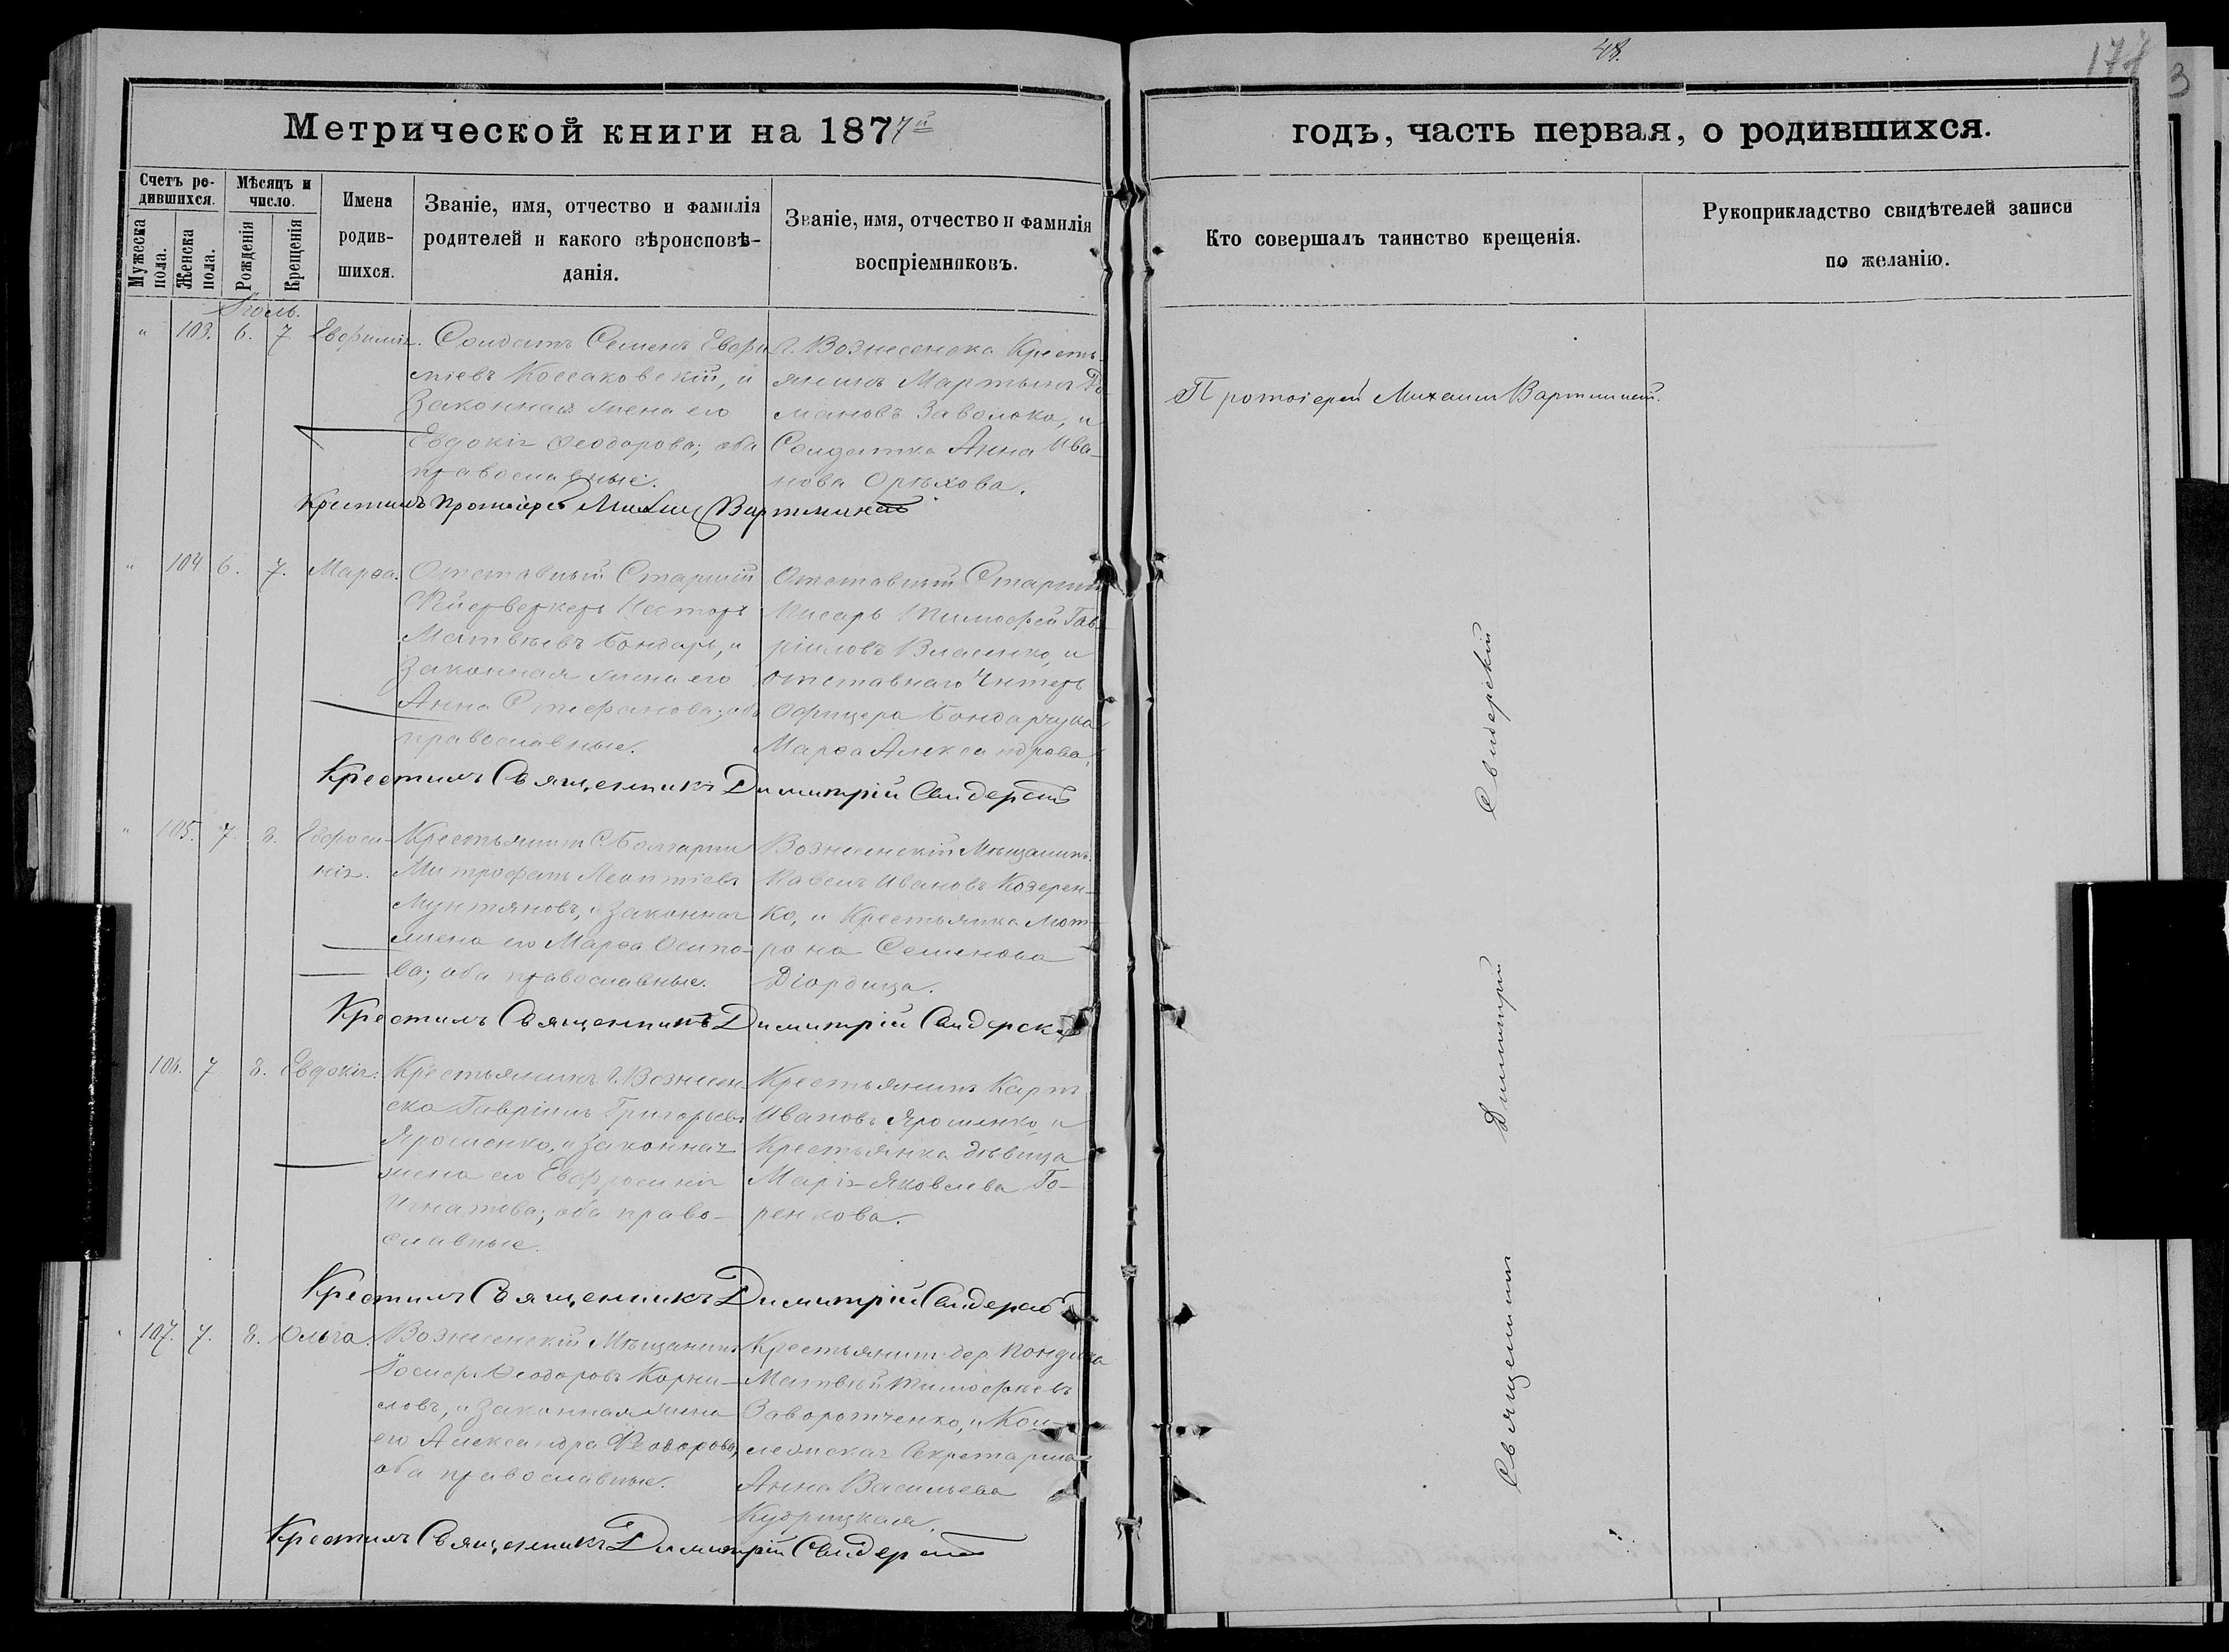 48.
177
3
Метрической книги на 1877й
годъ, часть первая, о родившихся.
Счетъ ро-
дившихся.
Мужеска пола.
Женска пола.
Мѣсяцъ и
число.
Рожденія
Крещенія
Имена
родив-
шихся.
Званіе, имя, отчество и фамилія
родителей и какого вѣроисповѣ-
данія.
Званіе, имя, отчество и фамилія
воспріемниковъ.
Кто совершалъ таинство крещенія.
Рукоприкладство свидѣтелей записи
по желанію.
" 103. 6. 7 Евфимія.
Солдатъ Семенъ Евфи
міевъ Коссаковскій, и
законная жена его
Евдокія Ѳеодорова; оба
православные.
г. Вознесенска Кресть-
янинъ Мартынъ Ро-
мановъ Заволока, и
Солдатка Анна Ива-
нова Орѣхова.
Крестилъ Протоіерей Михаил Вартминскій
Протоіерей Михаил Вартминскій.
" 104 6. 7. Марѳа.
Отставный Старшій
Фейерверкеръ Несторъ
Матвѣевъ Бондарь, и
законная жена его
Анна Стефанова; оба
православные.
Отставный Старшій
Писарь Тимофей Гав-
ріиловъ Власенко, и
отставнаго Унтеръ
Офицера Бондарчука
Марѳа Александрова.
Крестилъ Священникъ Димитрій Свидерскій
" 105. 7. 8. Евфроси-
нія.
Крестьянинъ С. Болгарки
Митрофанъ Леонтіевъ
Мунтяновъ, и законная
жена его Марѳа Осипо-
ва; оба православные.
Вознесенскій Мѣщанинъ
Павелъ Ивановъ Козерен-
ко, и Крестьянка Мот-
рона Семенова
Діордица.
Крестилъ Священникъ Димитрій Свидерскій
106. 7 8. Евдокія.
Крестьянинъ г. Вознесен-
ска Гавріилъ Григорьевъ
Ярошенко, и законная
жена его Евфросинія
Игнатова; оба право-
славные.
Крестьянинъ Карпъ
Ивановъ Ярошенко, и
Крестьянка дѣвица
Марія Яковлева Го-
ренкова.
Крестилъ Священникъ Димитрій Свидерскій
" 107. 7. 8. Ольга.
Вознесенскій Мѣщанинъ
Іосифъ Ѳеодоровъ Корни-
ловъ, и законная жена
его Александра Ѳеодорова,
оба православные.
Крестьянинъ дер.
Матвѣй Тимофѣевъ
Заворотченко, и Кол-
лежская Секретарша
Анна Васильева
Кудрицкая.
Крестилъ Священникъ Димитрій Свидерскій
Священникъ Димитрій Свидерскій